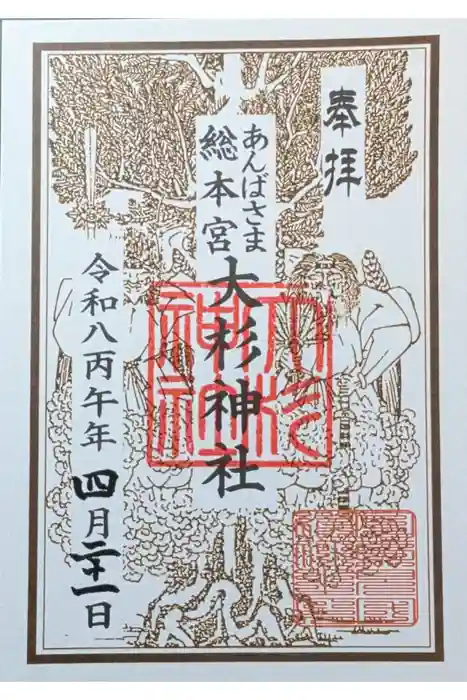 奉拝
あんばさま
総本宮
大杉神社
大杉神社
令和八丙午年
四月二十一日